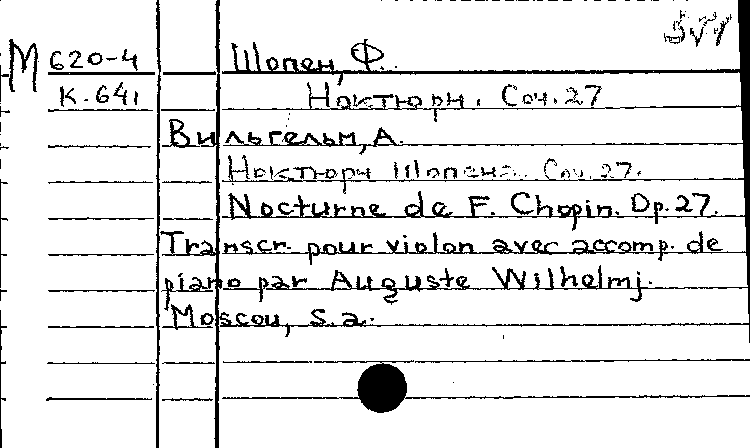 М 620-4 Шопен, Ф.
К.641 Ноктюрн. Соч.27
Вильгельм, А.
Ноктюрн Шопена. Соч. 27.
Nocturne de F. Chopin. Op.27.
Transcr. pour violon avec accomp. de
piano par Auguste Wilhelmj.
Moscou, s.a.